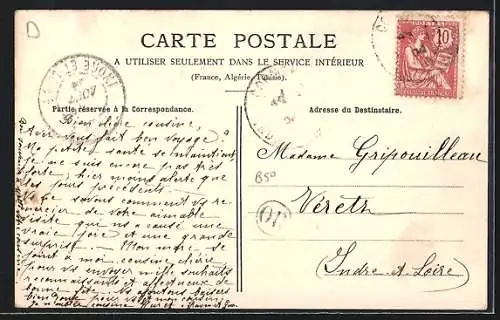 D
CARTE POSTALE
A UTILISER SEULEMENT DANS LE SERVICE INTÉRIEUR
(France, Algérie, Tunisie).
10
Partie réservée à la Correspondance.
Adresse du Destinataire.
Bien chère cousine,
Avez vous fait bon voyage ?
Ma petite santé se maintient
je ne suis encore pas très
forte, hier moins alerte que
les jours précédents.
Je ne savons comment vous re-
mercier de votre aimable
visite qui nous a causé une
vraie joie et une grande
surprise. — Mon
joint à moi, cousine chère,
pour vous envoyer mille souhaits
reconnaissants et affectueux de
bonne fête.
Madame Gripouilleau
B50
Veretz
(Indre-et-Loire)